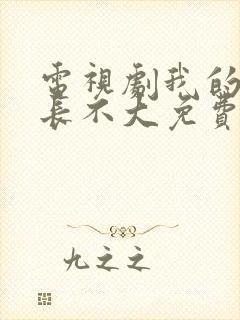 電視劇我的
長不大免費
九之之